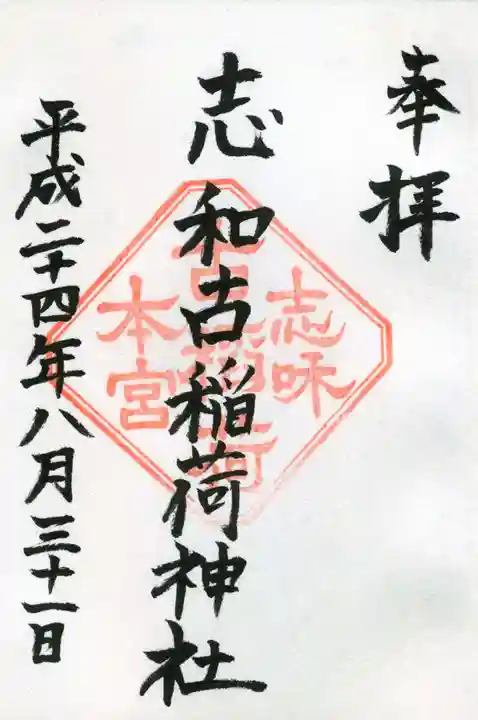 奉拝
志和古稲荷神社
平成二十四年八月三十一日
志味
古稲荷
本宮